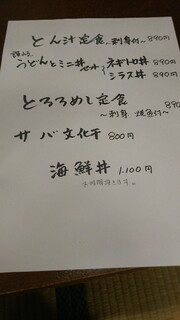 とん汁定食〜刺身付〜 890円
うどんとミニ丼セット ネギトロ丼 890円
シラス丼
とろろめし定食 890
〜刺身 焼魚付〜
サバ文化干 800円
海鮮丼 1.100円